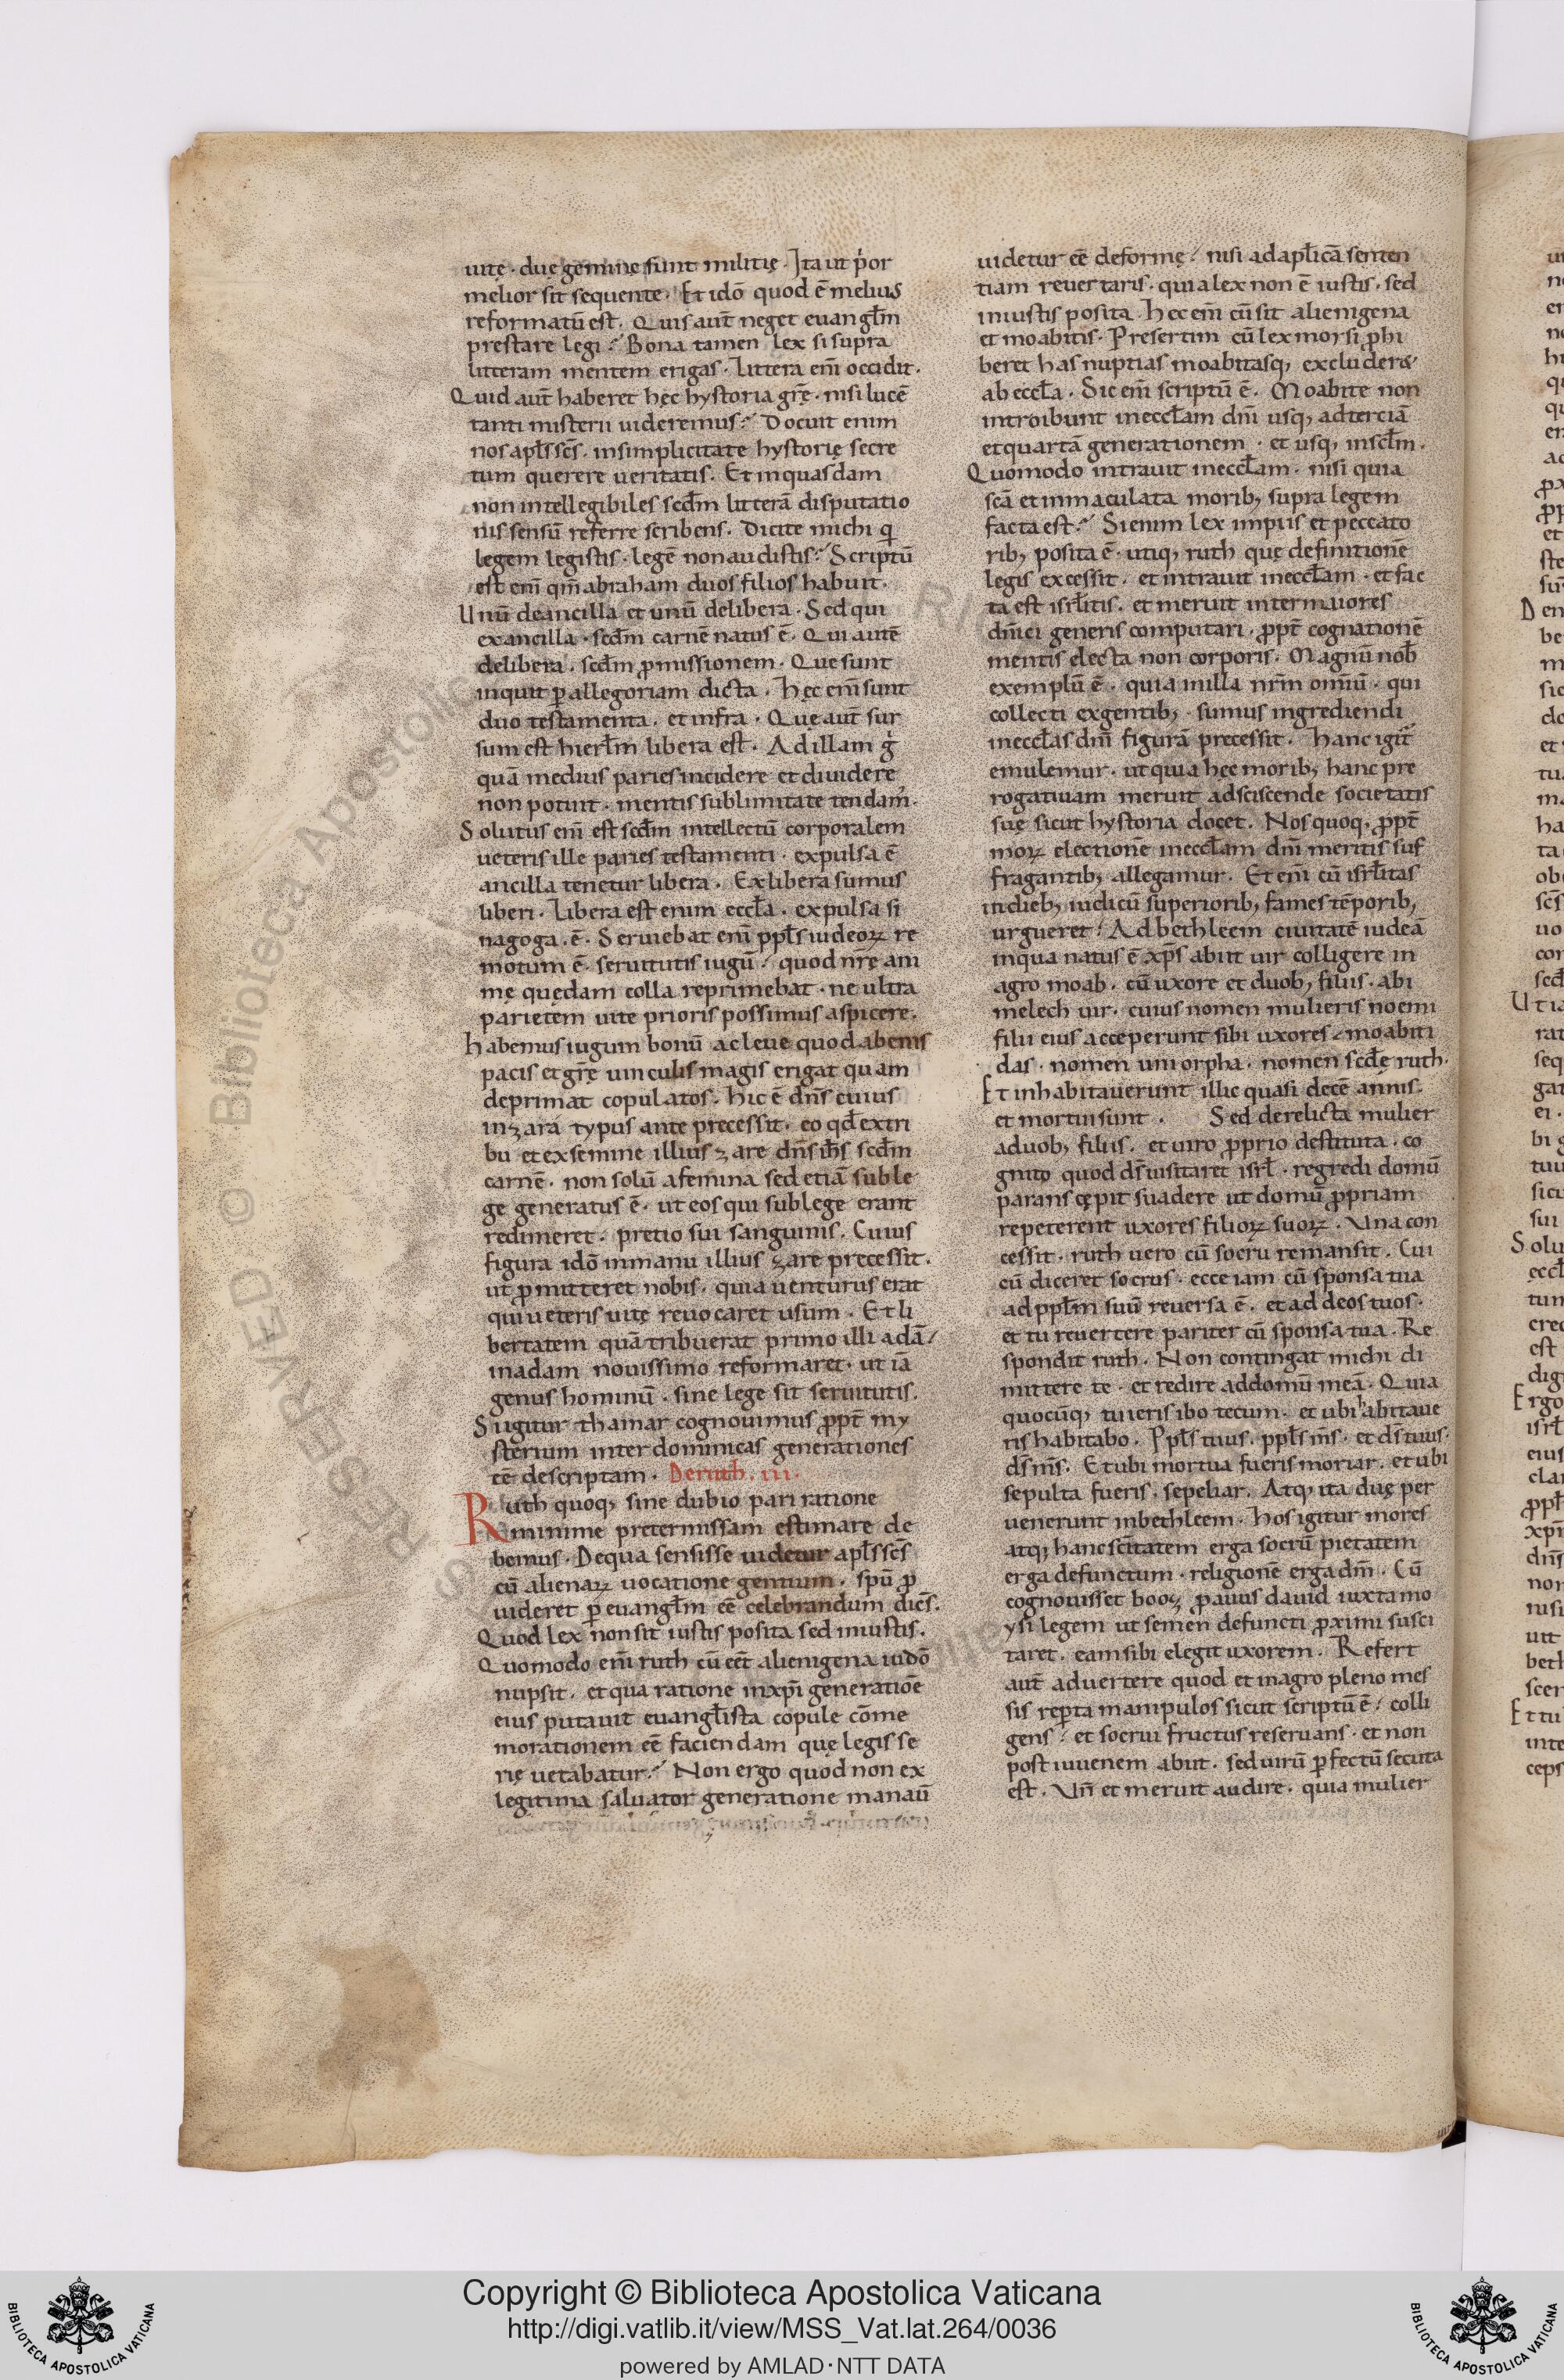 uitę · duę geminę sunt militię · Ita ut p̍or
melior sit sequente · Et idō quod ē melius
reformatū est . Quis aut̄ neget euangl̄m
prestare legi :́ Bona tamen lex si supra
litteram mentem erigas · Littera em̄ occidit .
Quid aut̄ haberet hęc hystoria grę̄ · nisi lucē
tanti misterii uideremus :́ Docuit enim
nos apl̄s sc̄s · in simplicitate hystorię secre
tum querere ueritatis . Et in quasdam
non intellegibiles scd̄m litterā disputatio
nis sensū referre scribens . Dicite michi q̄
legem legistis · legē non audistis :́ Scriptū
est em̄ qm̄ abraham duos filios habuit ·
Unū de ancilla et unū de libera · Sed qui
ex ancilla · scd̄m carnē natus ē · Qui autē
de libera . scd̄m ꝓmissionem · Que sunt
inquit ꝑ allegoriam dicta . Hęc em̄ sunt
duo testamenta . et infra . Quę aut̄ sur
sum est hierl̄m libera est . Ad illam g̍
quā medius paries incidere et diuidere
non potuit . mentis sublimitate tendam᷒ .
Solutus em̄ est scd̄m intellectū corporalem
ueteris ille paries testamenti · expulsa ē
ancilla tenetur libera . Ex libera sumus
liberi . Libera est enim eccl̄a . expulsa si
nagoga . ē . Seruiebat em̄ ppl̄s iudeoꝝ re
motum ē . seruitutis iugū :́ quod nr̄ę ani
mę quędam colla reprimebat · ne ultra
parietem uite prioris possimus aspicere .
habemus iugum bonū ac leue quod abenis
pacis et grę̄ uinculis magis erigat quam
deprimat copulatos . Hic ē dn̄s cuius
in zara typus ante precessit . eo qd̄ ex tri
bu et ex semine illius zare dn̄s ih̄s scd̄m
carnē . non solū a femina sed etiā sub le
ge generatus ē · ut eos qui sub lege erant
redimeret . pretio sui sanguinis . Cuius
figura idō in manu illius zare precessit .
ut ꝓmitteret nobis . quia uenturus erat
qui ueteris uitę reuocaret usum . Et li
bertatem quā tribuerat primo illi adā /
in adam nouissimo reformaret · ut iā
genus hominū . sine lege sit seruitutis .
Si igitur thamar cognouimus ꝓpt̄ my
sterium inter dominicas generationes
ēē descriptam . De ruth . iii .
Ruth quoq; sine dubio pari ratione
minime pretermissam estimare de
bemus . De qua sensisse uidetur apl̄s sc̄s
cū alienaꝝ uocatione gentium . spū ꝓ
uideret ꝑ euangl̄m ēē celebrandum dic̄s .
Quod lex non sit iustis posita sed iniustis .
Quomodo em̄ ruth cū eēt alienigena iudō
nupsit . et qua ratione in xp̄i generatiōe
eius putauit euangl̄ista copule cōme
morationem ēē faciendam quę legis se
rię uetabatur :́ Non ergo quod non ex
legitima saluator generatione manaū
uidetur ēē deformę :́ nisi ad apl̄icā senten
tiam reuertaris . quia lex non ē iustis . sed
iniustis posita . Hec em̄ cū sit alienigena
et moabitis . Presertim cū lex moysi ꝓhi
beret has nuptias moabitasq; excluderet
ab eccl̄a . Sic em̄ scriptū ē . Moabite non
introibunt in eccl̄am dn̄i usq; ad terciā
et quartā generationem . et usq; in scl̄m .
Quomodo intrauit in eccl̄am . nisi quia
sc̄a et inmaculata morib; supra legem
facta est :́ Si enim lex impiis et peccato
rib; posita ē . utiq; ruth quę definitionē
legis excessit . et intrauit in eccl̄am . et fac
ta est isrl̄itis . et meruit inter maiores
dn̄ici generis computari . ꝓpt̄ cognationē
mentis electa non corporis . Magnū nob̄
exemplū ē . quia in illa nr̄m om̄iū · qui
collecti ex gentib; sumus ingrediendi
in eccl̄as dn̄i figurā precessit . Hanc igit᷒
emulemur . ut quia hęc morib; hanc pre
rogatiuam meruit adsciscende societatis
suę sicut hystoria docet . Nos quoq; ꝓpt̄
moꝝ electionē in eccl̄am dn̄i meritis suf
fragantib; allegamur . Et em̄ cū isrl̄itas
in dieb; iudicū superiorib; fames tēporib;
urgueret :́ Ad bethleem ciuitatē iudeā
in qua natus ē xp̄s abiit uir colligere in
agro moab . cū uxore et duob; filiis . abi
melech uir . cuius nomen mulieris noemi
filii eius acceperunt sibi uxores / moabiti
das . nomen uni orpha . nomen scd̄e ruth .
Et inhabitauerunt illic quasi decē annis .
et mortui sunt . Sed derelicta mulier
a duob; filiis . et uiro ꝓprio destituta . co
gnito quod ds̄ uisitaret isrl̄ . regredi domū
parans cępit suadere ut domū ꝓpriam
repeterent uxores filioꝝ suoꝝ . Una con
cessit . ruth uero cū socru remansit . Cui
cū diceret socrus . ecce iam cū sponsa tua
ad ppl̄m suū reuersa ē . et ad deos tuos .
et tu reuertere pariter cū sponsa tua . Re
spondit ruth . Non contingat michi di
mittere te . et redire ad domū meā . Quia
quocūq; tu ieris ibo tecum . et ubi habitaue
ris habitabo . Ppl̄s tuus . ppl̄s m̄s . et ds̄ tuus .
ds̄ m̄s . Et ubi mortua fueris moriar . et ubi
sepulta fueris . sepeliar . Atq; ita duę per
uenerunt in bethleem . Hos igitur mores
atq; hanc scītatem erga socrū pietatem
erga defunctum . religionē erga dm̄ . Cū
cognouisset booz ꝓauus dauid iuxta mo
ysi legem ut semen defuncti ꝓximi susci
taret . eam sibi elegit uxorem . Refert
aut̄ aduertere quod et in agro pleno mes
sis reꝑta manipulos sicut scriptū ē :́ colli
gens :́ et socrui fructus reseruans . et non
post iuuenem abiit . sed uirū ꝑfectū secuta
est . Un̄ et meruit audire . quia mulier
Copyright © Biblioteca Apostolica Vaticana
http://digi.vatlib.it/view/MSS_Vat.lat.264/0036
powered by AMLAD·NTT DATA